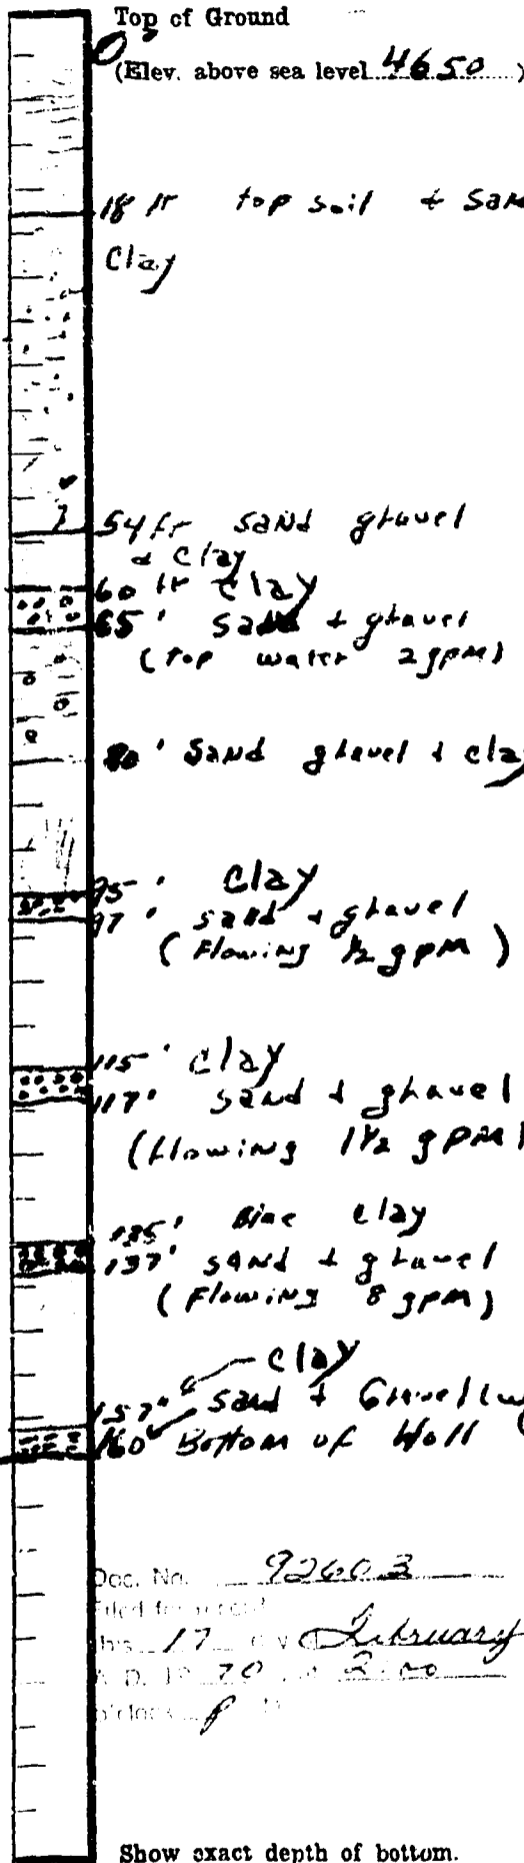 Top of Ground
0"
(Elev. above sea level 4650 )
18 ft top soil + San
Clay
54 ft sand gravel
& clay
60 ft Clay
65' sand + gravel
(top water 2 gpm)
80' sand gravel + clay
95' Clay
97' sand + gravel
(Flowing 1/2 gpm)
115' Clay
117' sand + gravel
(flowing 1 1/2 gpm)
135' Blue Clay
137' sand + gravel
(Flowing 8 gpm)
Clay
157" sand + Gravel
160 Bottom of Woll
Doc. No. 92603
Filed for record
this 17 day of February
A. D. 19 70 at 2:00
o'clock P M
Show exact depth of bottom.